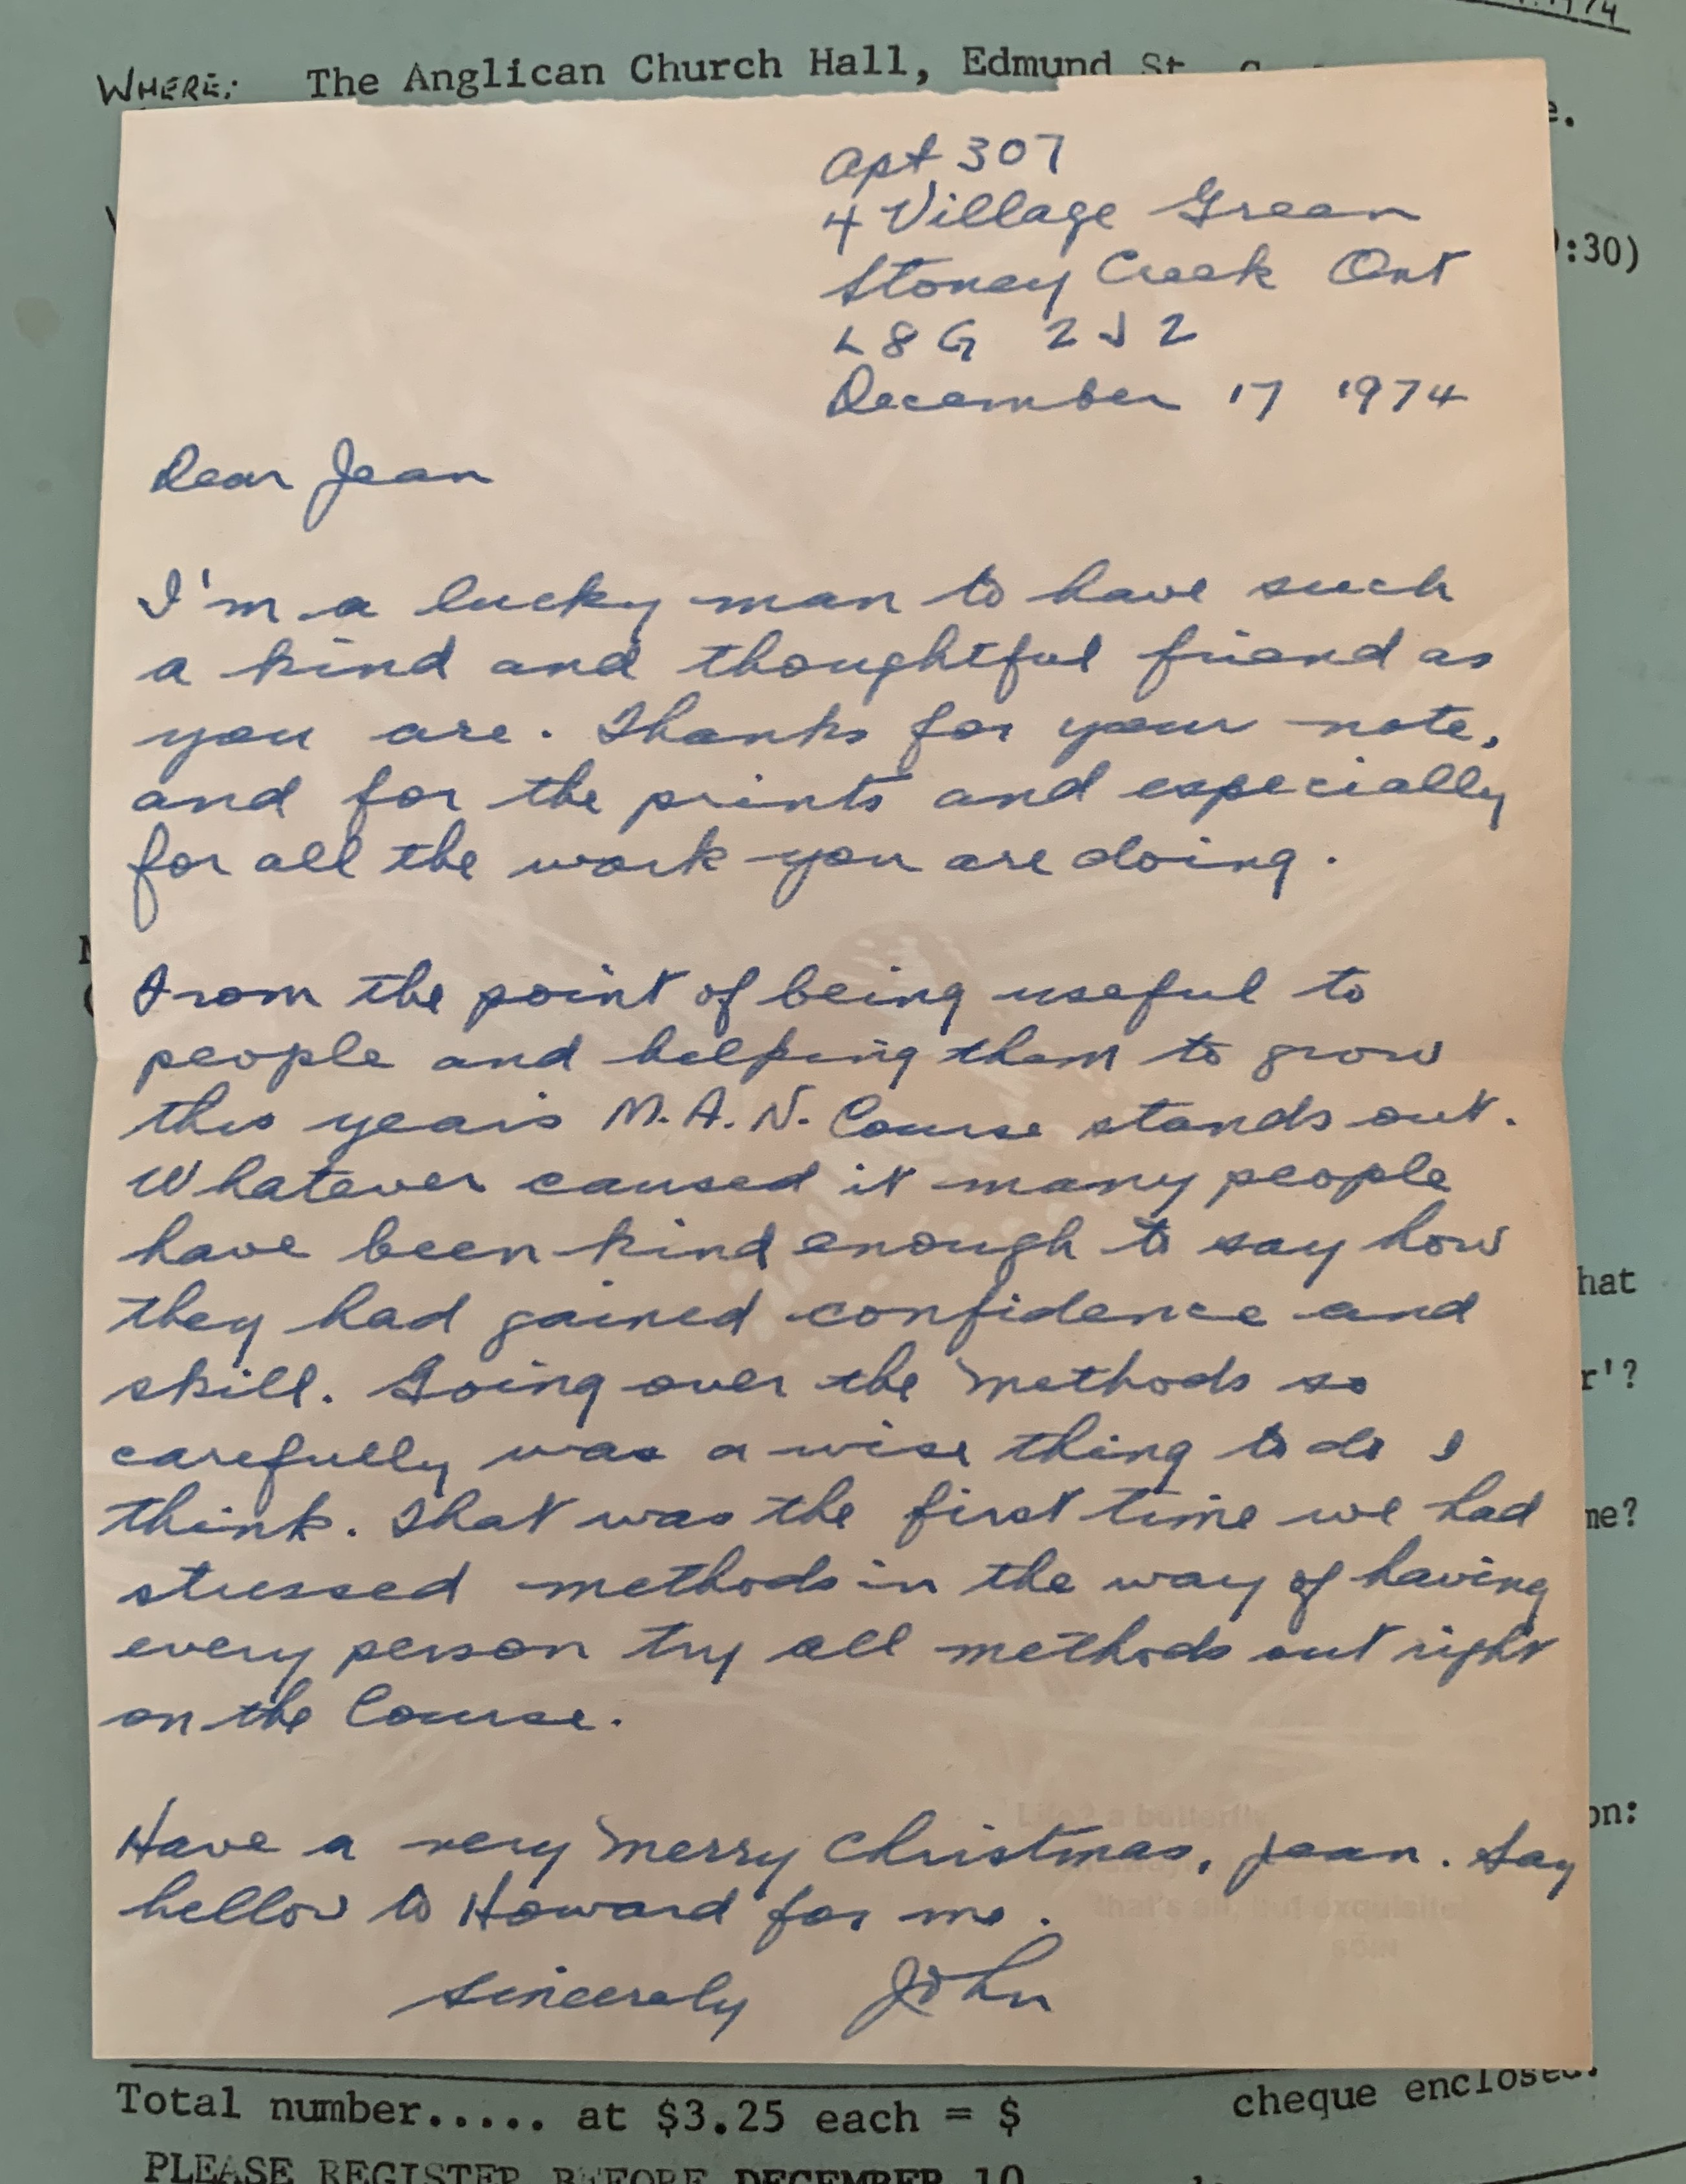 1974
WHERE: The Anglican Church Hall, Edmund St.
e.
:30)
Apt 307
4 Village Green
Stoney Creek Ont
L8G 2J2
December 17 1974
Dear Jean
I'm a lucky man to have such
a kind and thoughtful friend as
you are. Thanks for your note,
and for the prints and especially
for all the work you are doing.
From the point of being useful to
people and helping them to grow
this years M.A.N. Course stands out.
Whatever caused it many people
have been kind enough to say how
they had gained confidence and
hat
skill. Going over the Methods so
r'?
carefully was a wise thing to do I
think. That was the first time we had
me?
stressed methods in the way of having
every person try all methods out right
on the Course.
Life? a butterfly
on:
Have a very Merry Christmas, Jean. Say
hellow to Howard for me.
that's all, but exquisite
Sincerely John
Total number..... at $3.25 each = $ cheque enclosed.
PLEASE REGISTER BEFORE DECEMBER 10